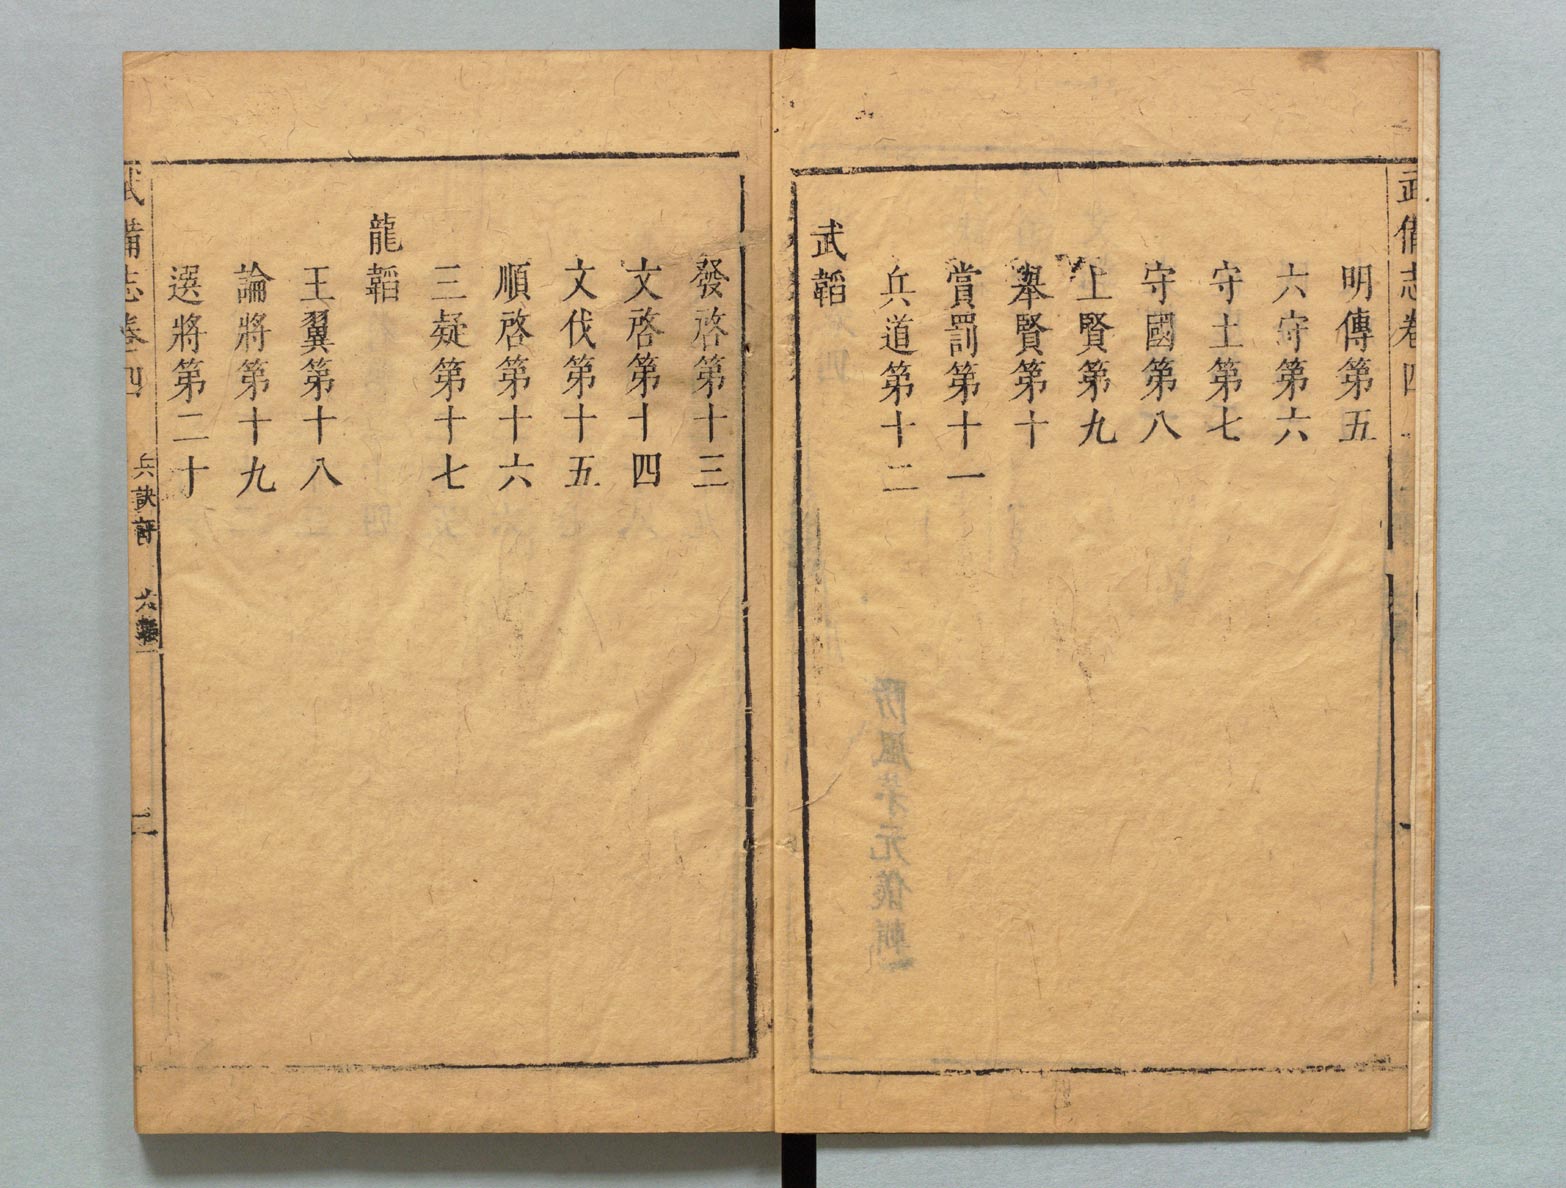 武備志卷四
明傳第五
六守第六
守土第七
守國第八
上賢第九
舉賢第十
賞罰第十一
兵道第十二
武韜
發啓第十三
文啓第十四
文伐第十五
順啓第十六
三疑第十七
龍韜
王翼第十八
論將第十九
選將第二十
武備志卷四 兵訣評 六韜一 二